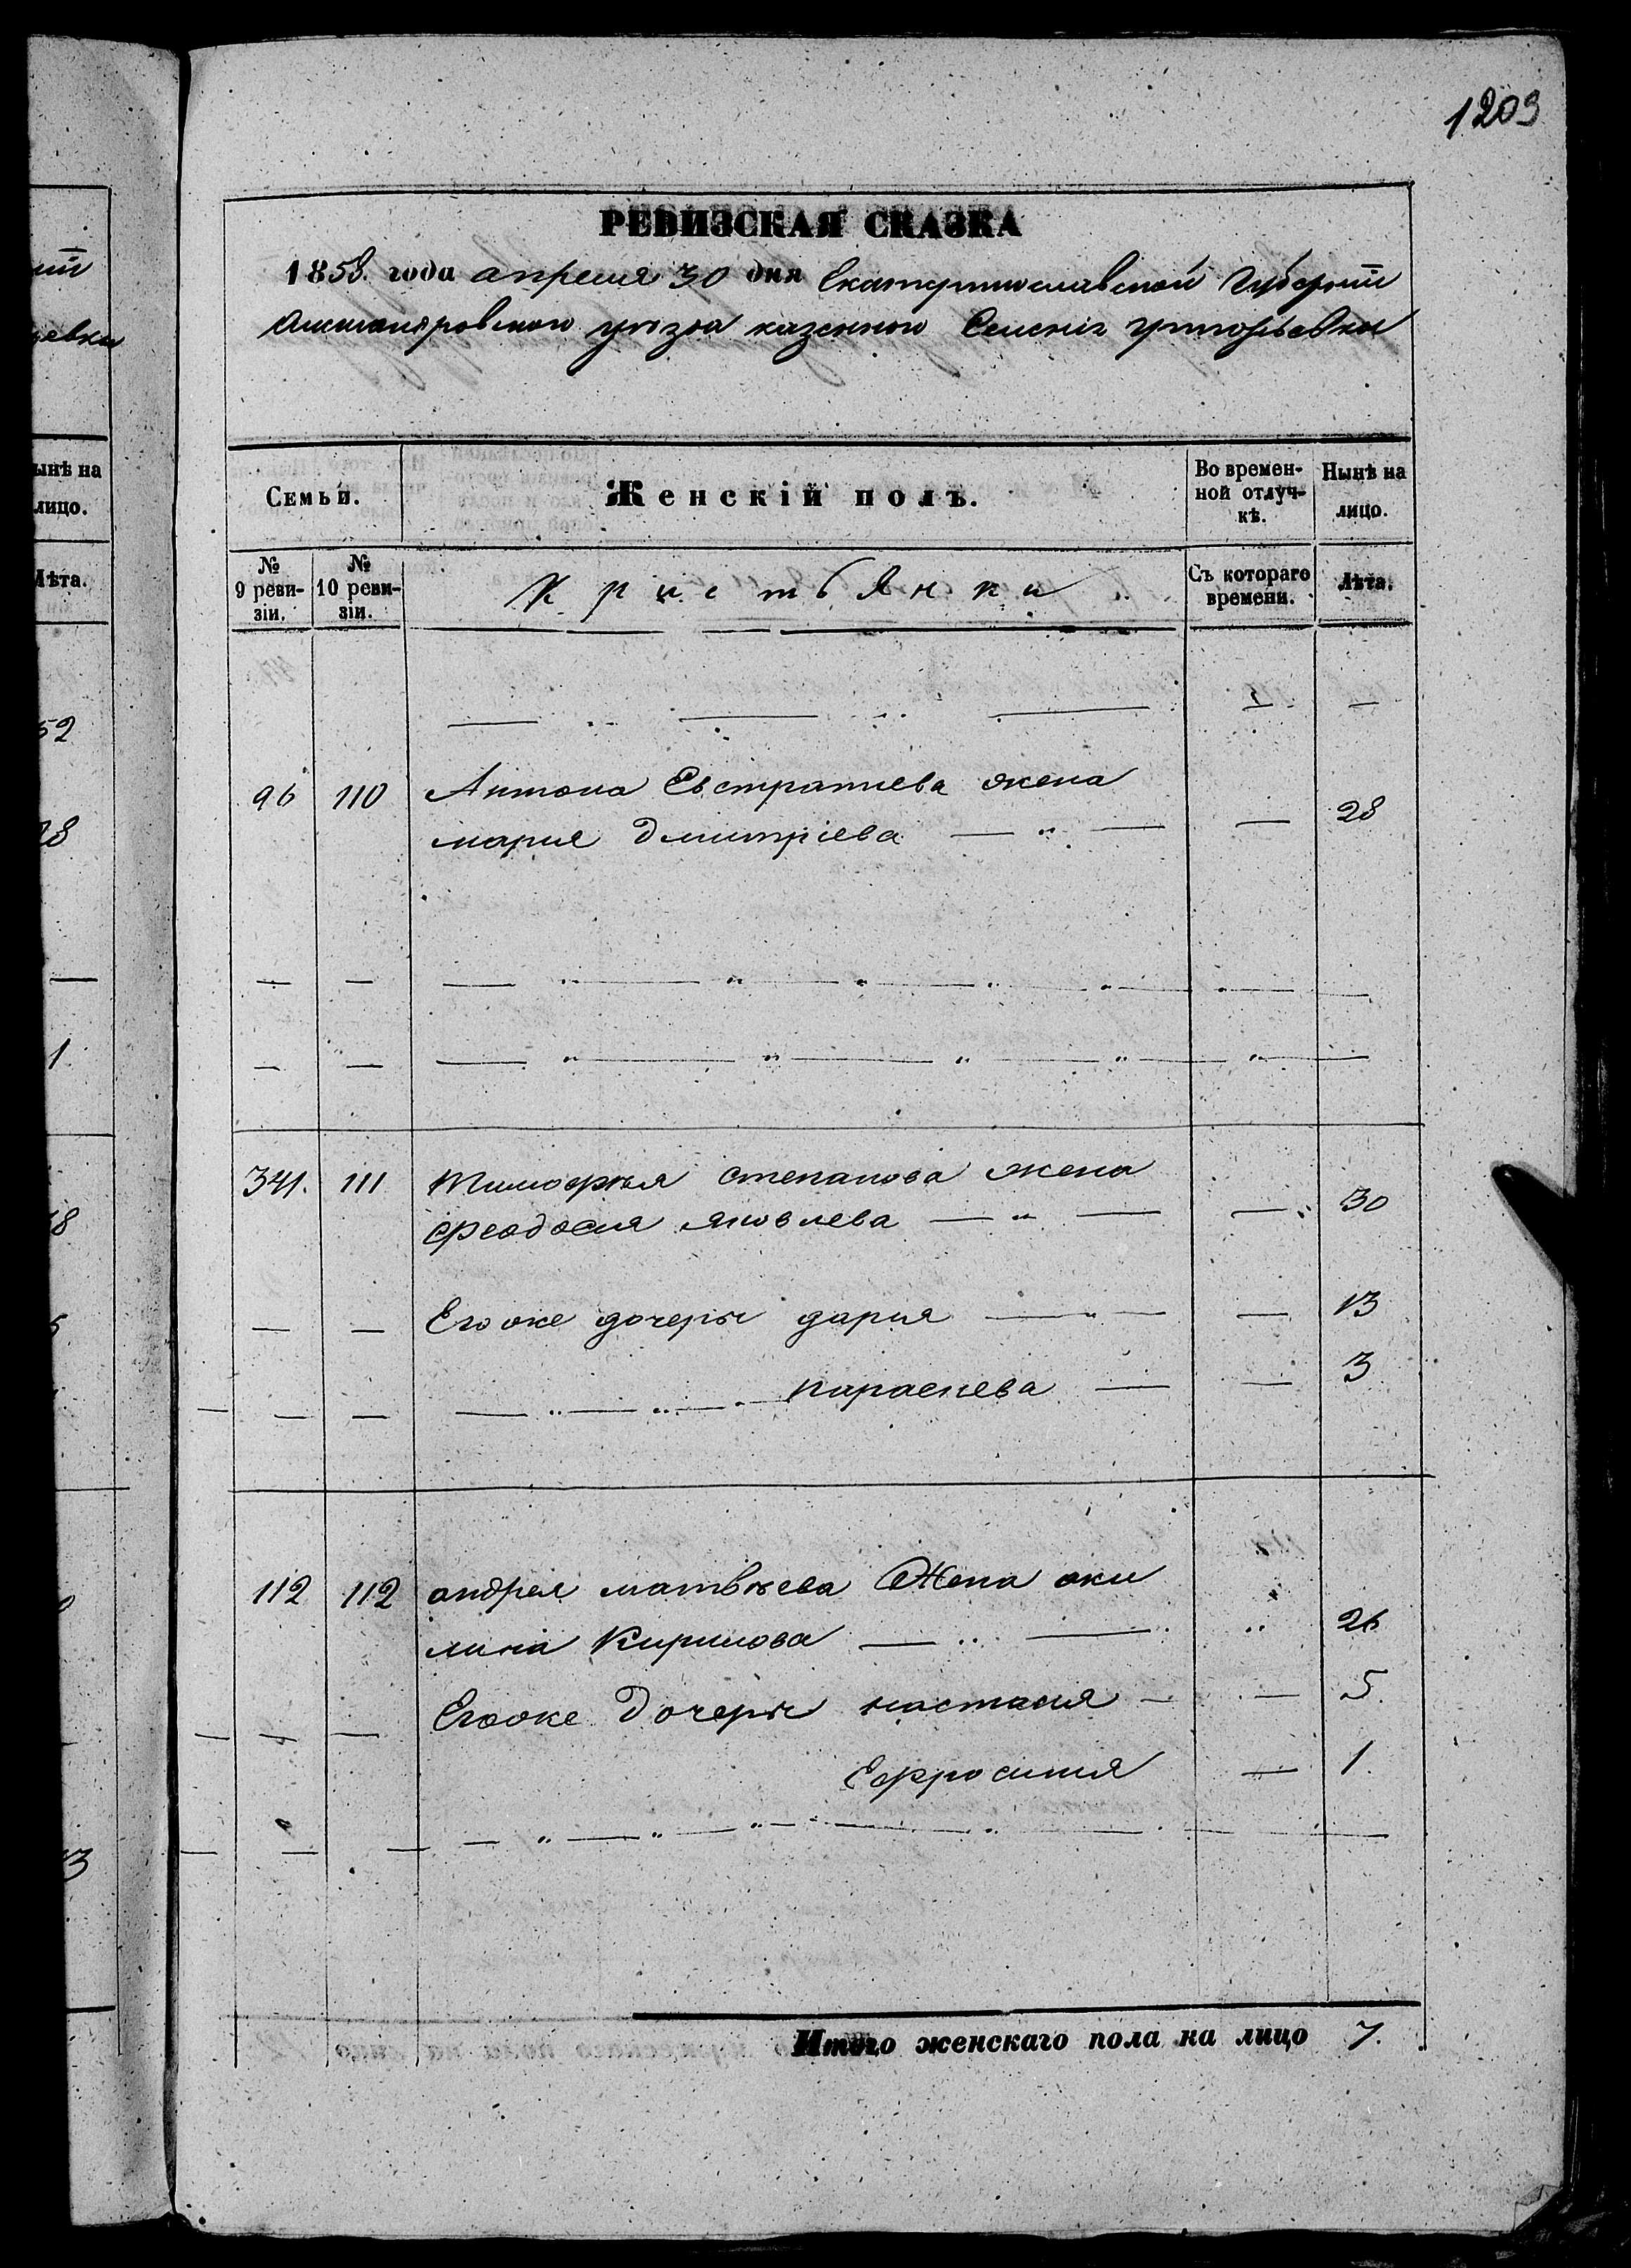 1203
РЕВИЗСКАЯ СКАЗКА
1858. года апреля 30 дня Екатеринославской Губерніи
Александровского уѣзда казенного Селенія
Семьи.
Женскій полъ.
Во времен-
ной отлуч-
кѣ.
Нынѣ на
лицо.
№
9 реви-
зіи.
№
10 реви-
зіи.
Кристьянки
Съ котораго
времени.
Лѣта.
96 110 Антона Евстратиева жена
мария Дмитріева — " — — 28
341. 111 Тимофѣя степанова жена
феодосия яковлева — " — — 30
Его же дочери дария — " — — 13
параскева — — 3
112 112 андрея матвѣева Жена аки
лина Кирилова — " — " 26
Его же Дочери настасия — — 5.
Ефросиния — 1.
Итого женскаго пола на лицо 7.
евки
ынѣ на
лицо.
Лѣта.
52
1